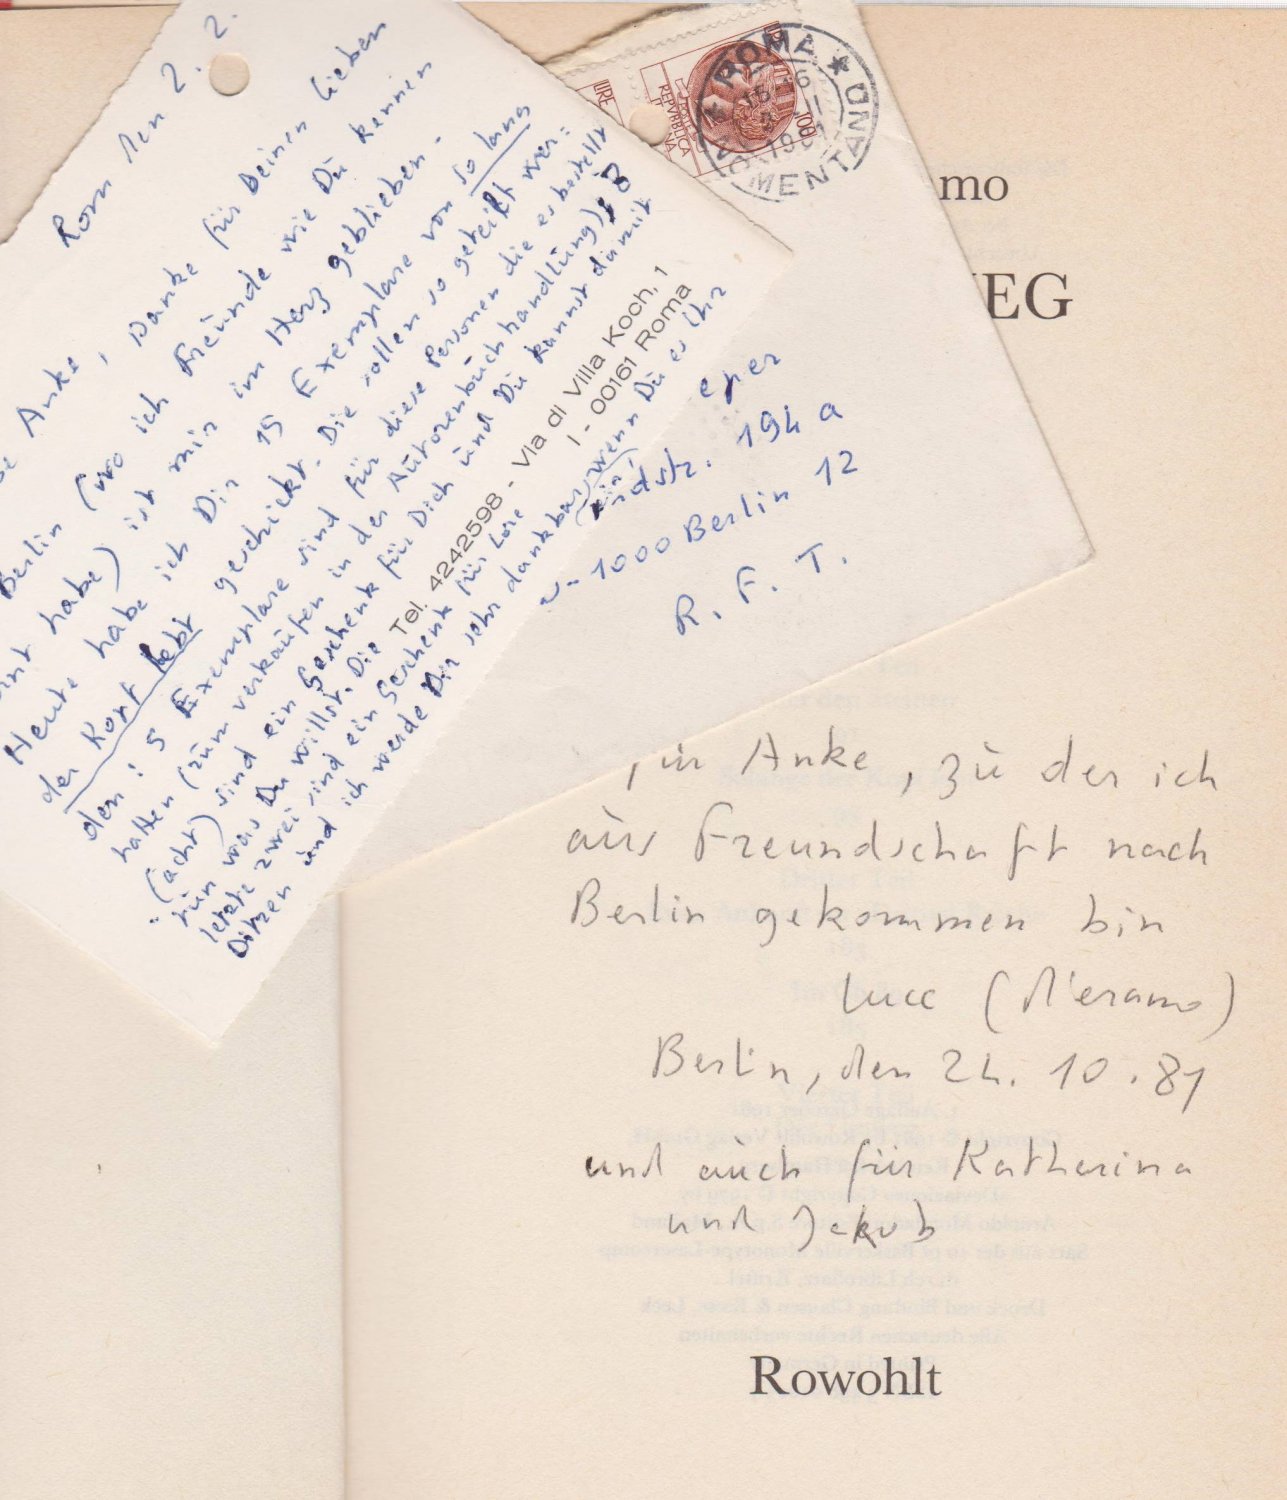 Rom den 2. 2.
Anke, Danke für Deinen lieben
Berlin (wo ich Freunde wie Du kennen
habe) ist mir im Herz geblieben.
Heute habe ich Dir 15 Exemplare von so lang
der Kopf lebt geschickt. Die sollen so geteilt wer=
den: 5 Exemplare sind für diese Personen die es bestellt
hatten (zum verkaufen in der Autorenbuchhandlung); 8
(acht) sind ein Geschenk für Dich und Du kannst damit
tun was Du willst. Die
letzte zwei sind ein Geschenk für Lore
Ditzen und ich werde Dir sehr dankbar, wenn Du es ihr
Tel. 4242598 - Via di Villa Koch, 1
I - 00161 Roma
LIRE
REPVBBLICA
ITALIANA
100
ROMA
NOMENTANO
eyer
str. 194 a
1000 Berlin 12
R. F. T.
mo
EG
für Anke, zu der ich
aus Freundschaft nach
Berlin gekommen bin
Luce (d'eramo)
Berlin, den 24. 10. 81
und auch für Katharina
und Jakob
Rowohlt